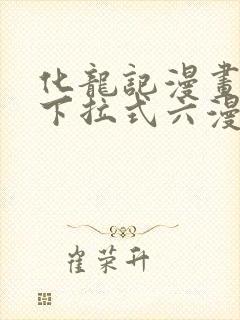 化龍記漫畫
下拉式六漫
崔荣升